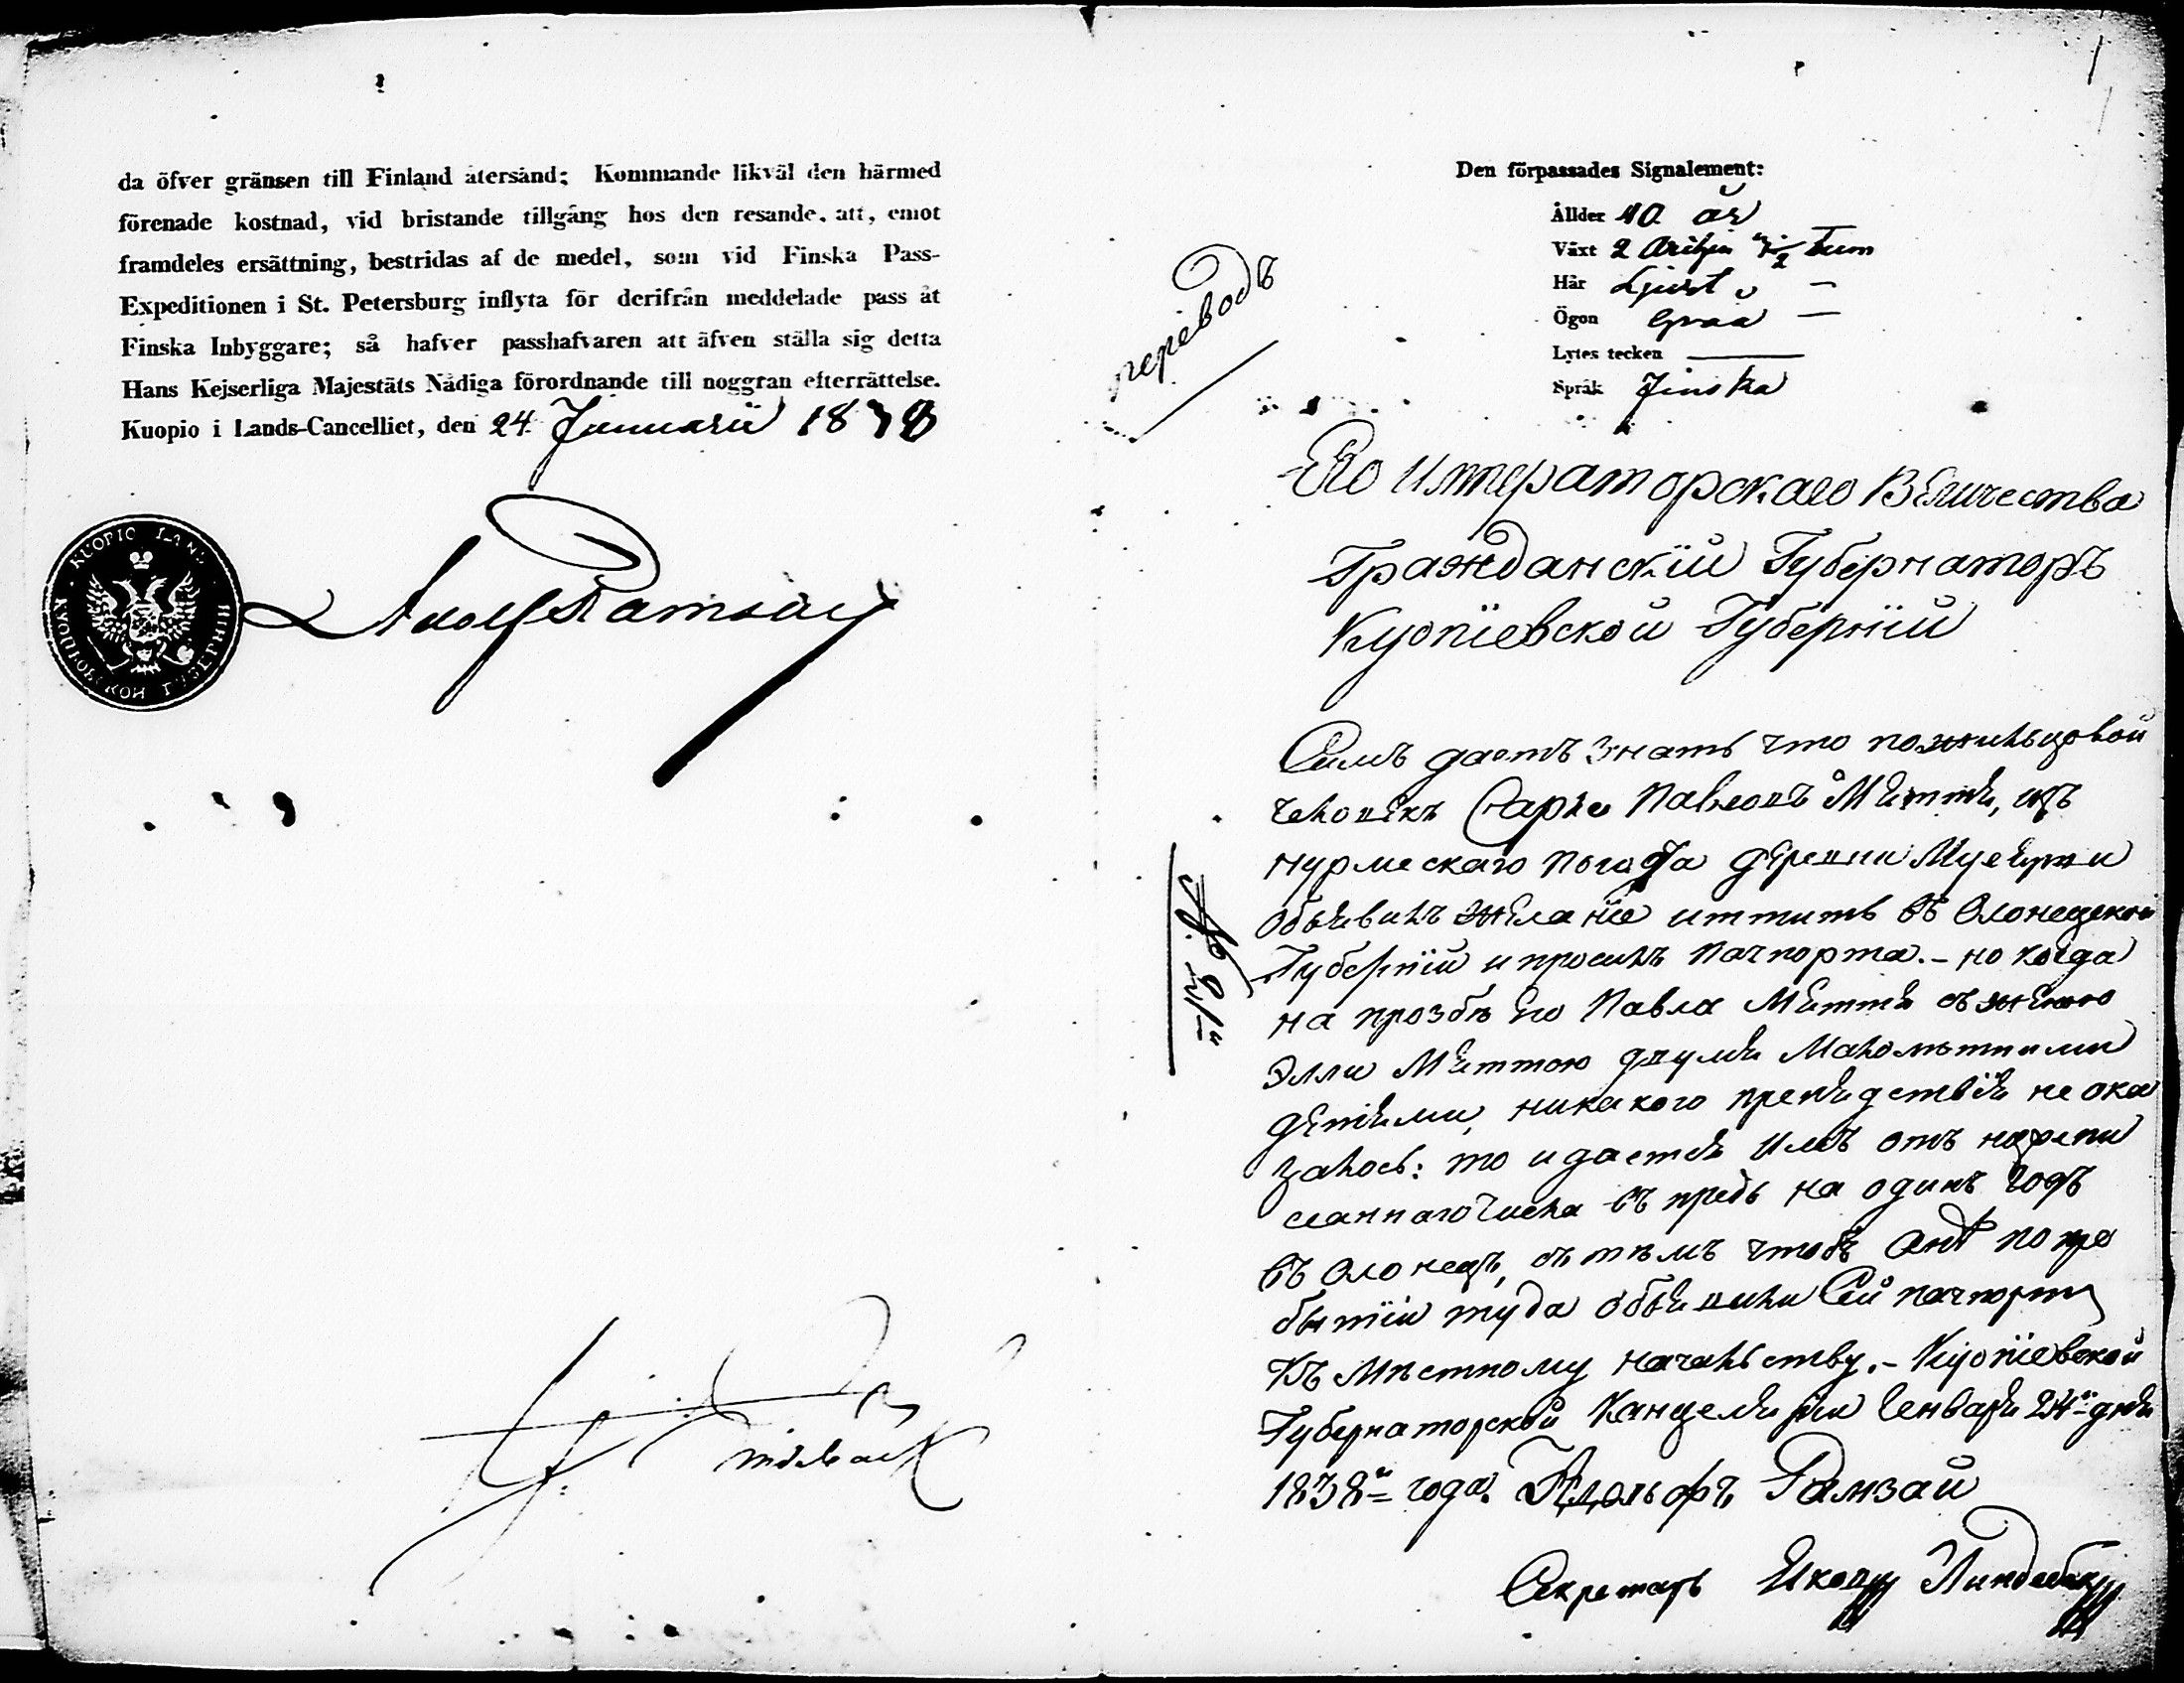 da öfver gränsen till Finland återsänd; Kommande likväl den härmed
förenade kostnad, vid bristande tillgång hos den resande, att, emot
framdeles ersättning, bestridas af de medel, som vid Finska Pass-
Expeditionen i St. Petersburg inflyta för derifrån meddelade pass åt
Finska Inbyggare; så hafver passhafvaren att äfven ställa sig detta
Hans Kejserliga Majestäts Nådiga förordnande till noggran efterrättelse.
Kuopio i Lands-Cancelliet, den 24. Januarii 1838
KUOPIO LÄNS
КУОПІОВСКОЙ ГУБЕРНИИ
Adolf Ramsay
Den förpassades Signalement:
Ållder 40 år
Växt 2 tum
Hår Ljust
Ögon Graa
Lytes tecken
Språk Finska
переводъ
Его Императорскаго Величества
Гражданскій Губернаторъ
Куопіевской Губерніи
Симъ даетъ знать что
Павловъ Меття, изъ
Нурмескаго погоста деревни
объявилъ желаніе иттить въ Олонецкой
Губерніи и просилъ пачпорта. - но когда
на прозбѣ его Павла Меття съ женою
Элли Меттою двумя малолѣтными
дѣтями, никакого препядствія не ока
залось: то и дается имъ отъ нижепи
саннаго числа въ предь на одинъ годъ
въ Олонецъ, съ тѣмъ чтобъ онъ по пре
бытіи туда объявили сей пачпортъ
къ мѣстному начальству. - Куопіевской
Губернаторской Канцеляріи Генваря 24го дня
1838го года. Адольфъ Рамзай
Секретарь Линдебек